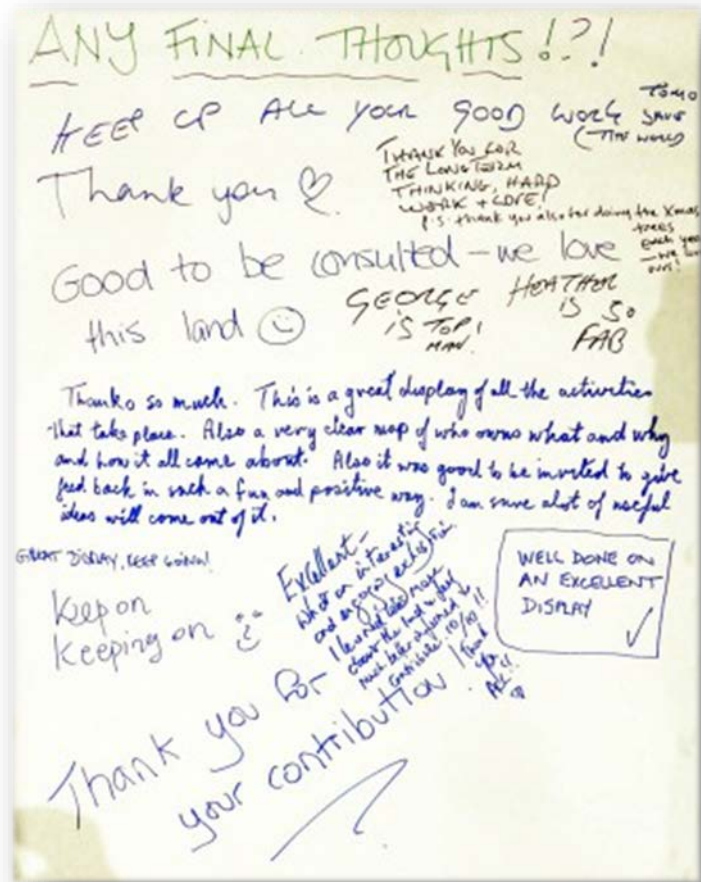 ANY FINAL THOUGHTS!?!
KEEP UP ALL YOUR GOOD WORK
TOMO
SAVE
(THE WORLD
Thank you
THANK YOU FOR
THE LONG TERM
THINKING, HARD
WORK + LOVE!
P.S. thank you also for doing the Xmas
trees
each year
—we love
ours!
Good to be consulted – we love
this land
GEORGE
IS TOP!
MAN.
HEATHER
IS SO
FAB
Thanks so much. This is a great display of all the activities
that take place. Also a very clear map of who owns what and why
and how it all came about. Also it was good to be invited to give
feed back in such a fun and positive way. I am sure alot of useful
ideas will come out of it.
GREAT DISPLAY, KEEP GOING!
Keep on
Keeping on
Excellent -
What an interesting
and engaging exhibition.
I learned
about the land & feel
much better informed to
contribute. 10/10!!
Thank
you
All!!
WELL DONE ON
AN EXCELLENT
DISPLAY
Thank you for
your contribution!